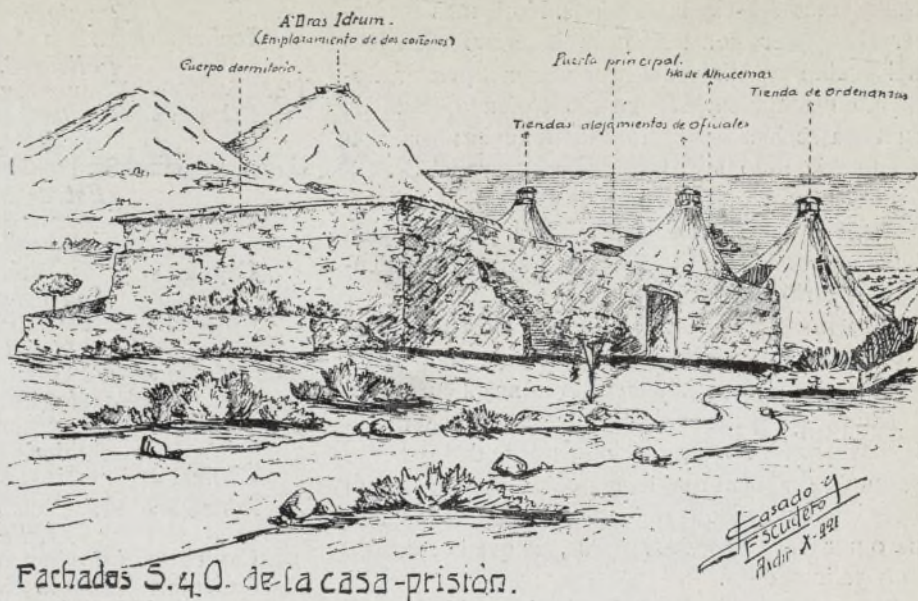 A'Dras Idrum.
(Emplazamiento de dos cañones)
Cuerpo dormitorio.
Puerta principal.
Isla de Alhucemas
Tienda de Ordenanzas
Tiendas alojamientos de Oficiales
Casado y
Escudero
Axdir X-921
Fachadas S. y O. de la casa-prisión.